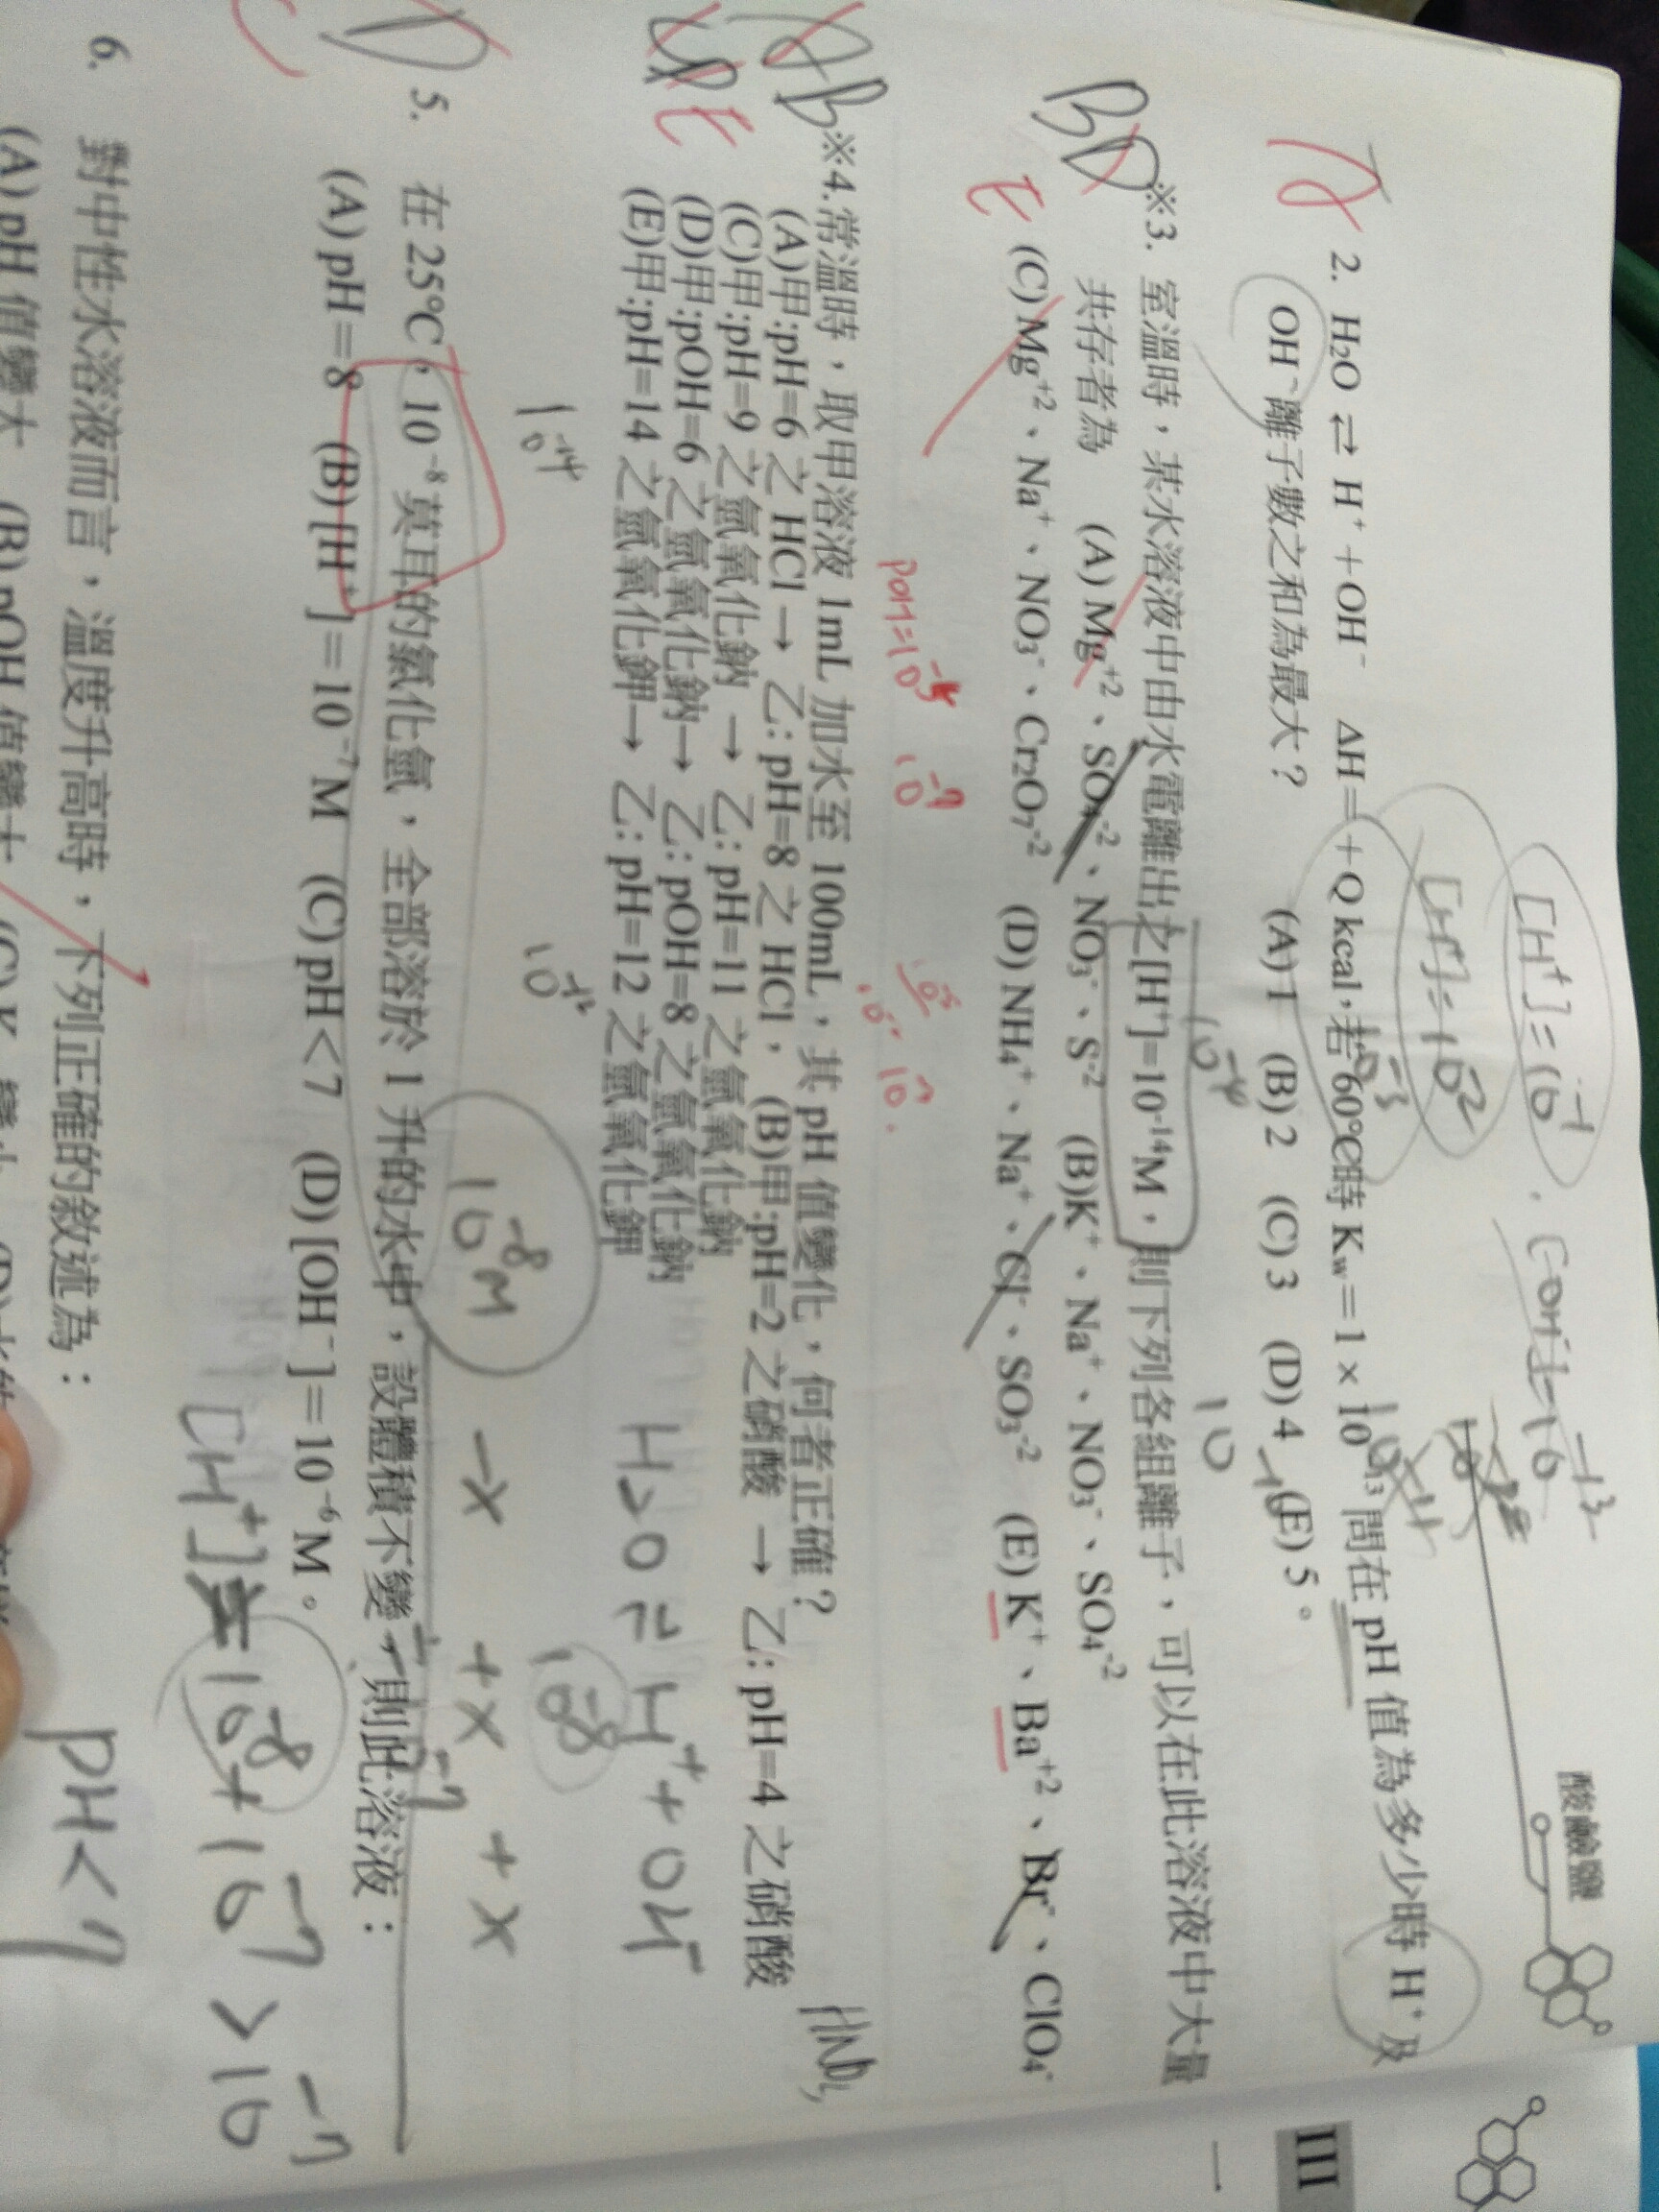 酸鹼鹽
III
[H⁺]=10⁻¹
[H⁺]=10⁻²
10⁻³
10⁻⁴
2. H₂O ⇌ H⁺+OH⁻ ΔH=+Q kcal,若60℃時 Kw=1×10⁻¹³ 問在 pH 值為多少時 H⁺ 及
OH⁻離子數之和為最大? (A) 1 (B) 2 (C) 3 (D) 4 (E) 5。
BD
E
※3. 室溫時,某水溶液中由水電離出之[H⁺]=10⁻¹⁴M,則下列各組離子,可以在此溶液中大量
共存者為 (A) Mg⁺²、SO₄⁻²、NO₃⁻、S⁻² (B)K⁺、Na⁺、NO₃⁻、SO₄⁻²
(C) Mg⁺²、Na⁺、NO₃⁻、Cr₂O₇⁻² (D) NH₄⁺、Na⁺、Cl⁻、SO₃⁻² (E) K⁺、Ba⁺²、Br⁻、ClO₄⁻
※4.常溫時,取甲溶液 1mL 加水至 100mL,其 pH 值變化,何者正確?
(A)甲:pH=6 之 HCl → 乙: pH=8 之 HCl, (B)甲:pH=2 之硝酸 → 乙: pH=4 之硝酸
HNO₃
(C)甲:pH=9 之氫氧化鈉 → 乙: pH=11 之氫氧化鈉
(D)甲:pOH=6 之氫氧化鈉→ 乙: pOH=8 之氫氧化鈉
(E)甲:pH=14 之氫氧化鉀→ 乙: pH=12 之氫氧化鉀
H₂O ⇌ H⁺ + OH⁻
10⁻¹⁴
10⁻¹²
10⁻⁸
10⁻⁸M -x +x +x
5. 在 25℃,10⁻⁸ 莫耳的氯化氫,全部溶於 1 升的水中,設體積不變,則此溶液:
(A) pH=8 (B) [H⁺]=10⁻⁷M (C) pH<7 (D) [OH⁻]=10⁻⁶M。
[H⁺]=10⁻⁸+10⁻⁷>10⁻⁷
pH<7
6. 對中性水溶液而言,溫度升高時,下列正確的敘述為:
(A) pH 值變大 (B) pOH 值變大